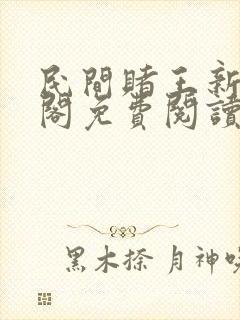 民間賭王新
閣免費閱讀
黑木捺 月神吸